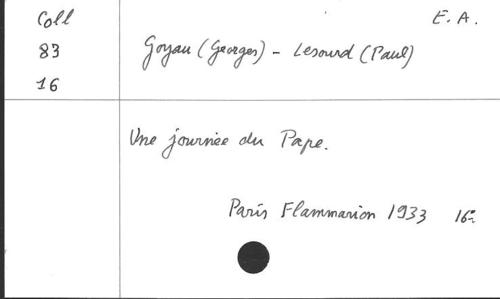 Coll
E. A.
83
Goyau (Georges) - Lesourd (Paul)
16
Une journée du Pape.
Paris Flammarion 1933 16º